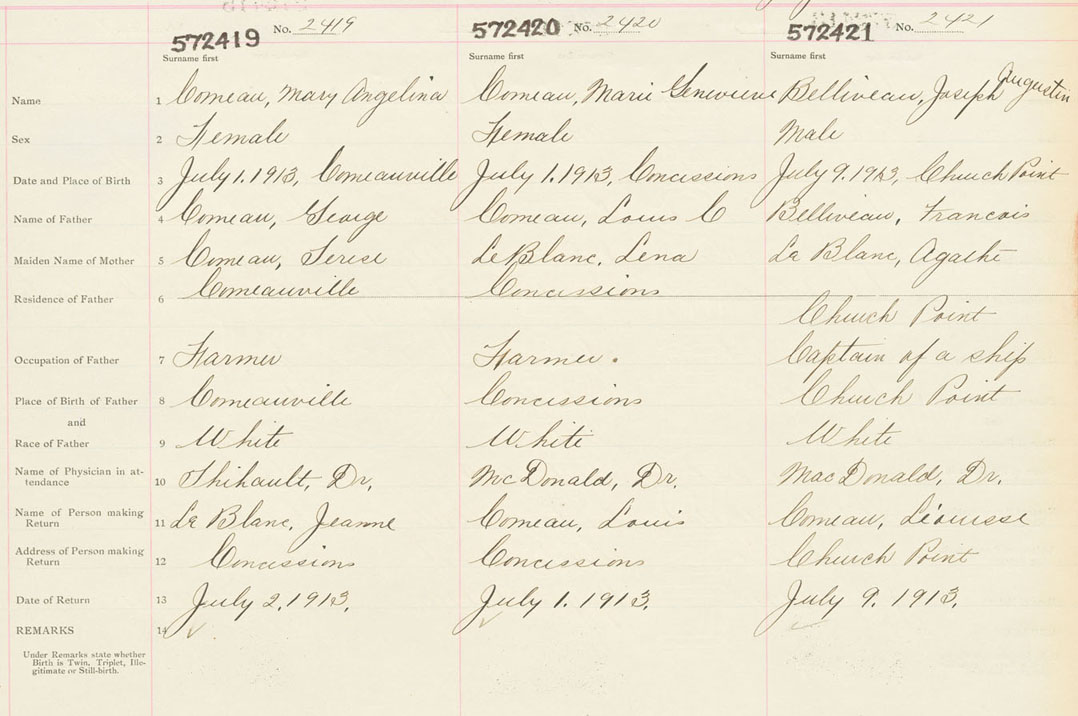 572419 No. 2419 572420 No. 2420 572421 No. 2421
Surname first Surname first Surname first
Name 1 Comeau, Mary Angelina Comeau, Marie Genevieve Belliveau, Joseph Augustin
Sex 2 Female Female Male
Date and Place of Birth 3 July 1. 1913, Comeauville July 1. 1913, Concessions July 9. 1913, Church Point
Name of Father 4 Comeau, George Comeau, Louis C Belliveau, Francois
Maiden Name of Mother 5 Comeau, Terese LeBlanc, Lena La Blanc, Agathe
Residence of Father 6 Comeauville Concissions Church Point
Occupation of Father 7 Farmer Farmer. Captain of a ship
Place of Birth of Father 8 Comeauville Concissions Church Point
and
Race of Father 9 White White White
Name of Physician in at-
tendance 10 Thibault, Dr. McDonald, Dr. MacDonald, Dr.
Name of Person making
Return 11 La Blanc, Jeanne Comeau, Louis Comeau,
Address of Person making
Return 12 Concissions Concissions Church Point
Date of Return 13 July 2. 1913. July 1. 1913. July 9. 1913.
REMARKS 14
Under Remarks state whether
Birth is Twin, Triplet, Ille-
gitimate or Still-birth.